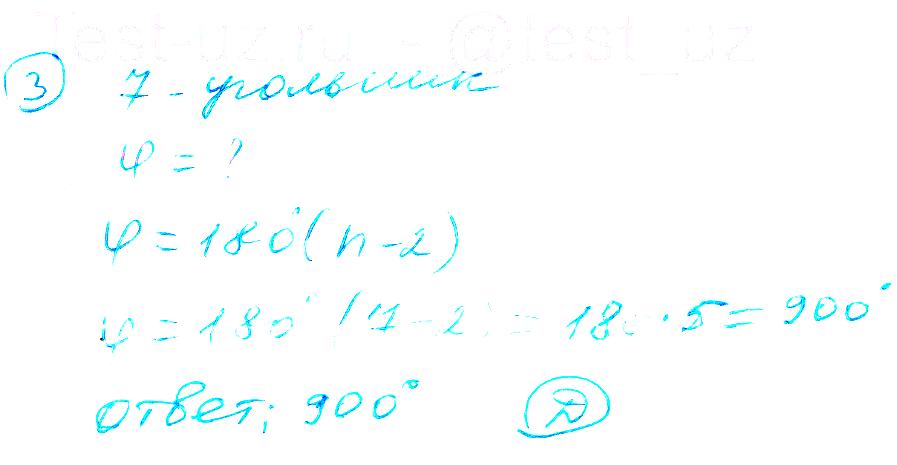 Test-uz.ru - @test_uz
3 7-угольник
φ = ?
φ = 180°(n-2)
φ = 180°(7-2) = 180·5 = 900°
Ответ; 900° D